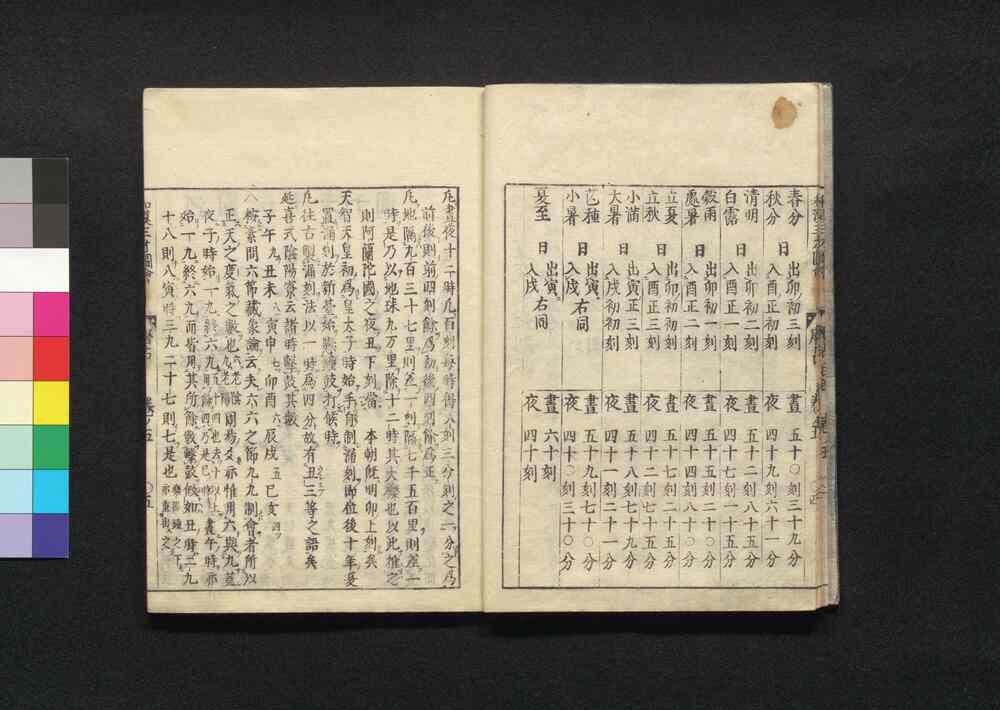 春分 秋分 日 出卯初三刻 入酉正初刻 晝 五十〇刻三十九分 夜 四十九刻六十一分
清明 白露 日 出卯初二刻 入酉正一刻 晝 五十二刻八十五分 夜 四十七刻一十五分
穀雨 處暑 日 出卯初一刻 入酉正二刻 晝 五十五刻二十分 夜 四十四刻八十〇分
立夏 立秋 日 出卯初初刻 入酉正三刻 晝 五十七刻二十五分 夜 四十二刻七十五分
小滿 大暑 日 出寅正三刻 入戌初初刻 晝 五十八刻七十九分 夜 四十一刻二十一分
芒種 小暑 日 出寅 入戌 右同 晝 五十九刻七十〇分 夜 四十〇刻三十〇分
夏至 日 出寅 入戌 右同 晝 六十刻 夜 四十刻
凡晝夜十二時凡百刻每時得八刻三分刻之一分之爲
前後則前四刻餘爲初後四刻餘爲正
凡地隔九百三十七里則差一刻隔七千五百里則差一
時是乃以地球九万里除十二時其大槪也以此推之
則阿蘭陀國之夜丑下刻當 本朝旣明卯上刻矣
天智天皇初爲皇太子時始手自制漏刻卽位後十年夏
置漏刻於新臺始動鐘鼓打候時
凡往古製漏刻法以一時爲四分故有丑三等之語矣
延喜式陰陽寮云諸時擊鼓其數
子午九 丑未八 寅申七 卯酉六 辰戌五 巳亥四
△按素問六節藏象論云夫六六之節九九制會者所以
正天之度氣之數也 周易爻亦惟用六與九蓋
夜子時始一九終六九 晝午時亦
始一九終六九而皆用其所餘數擊鼓假如丑時二九
十八則八寅時三九二十七則七是也